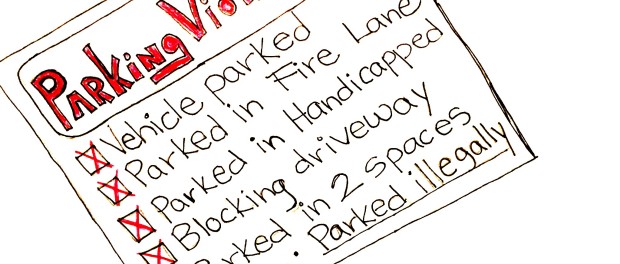 PARKING
Vehicle parked
Parked in Fire Lane
Parked in Handicapped
Blocking driveway
in 2 spaces
Parked illegally